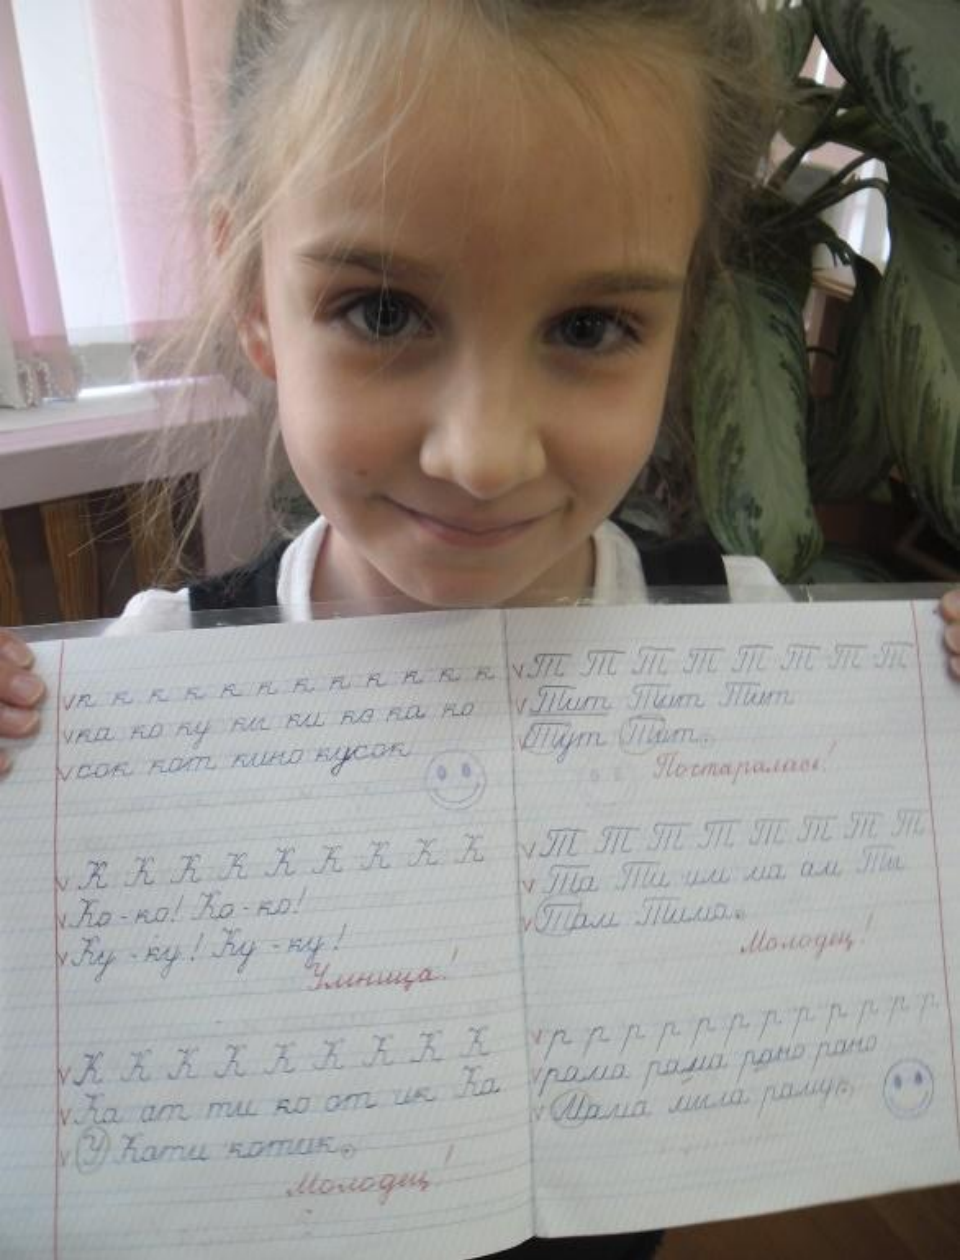 к к к к к к к к к к к к
ка ко ку ки ки ко ка ко
сок кот кино кусок
К К К К К К К К К
Ко-ко! Ко-ко!
Ку-ку! Ку-ку!
Умница!
К К К К К К К К К
Ка ат ти ко от ик Ка
У Кати котик.
Молодец!
Т Т Т Т Т Т Т Т
Тит Тит Тит
Тут Тит.
Постаралась!
Т Т Т Т Т Т Т Т
Та Ти им ма ам Ты
Там Тима.
Молодец!
р р р р р р р р р р р р
рама рама рано рано
Мама мыла раму.